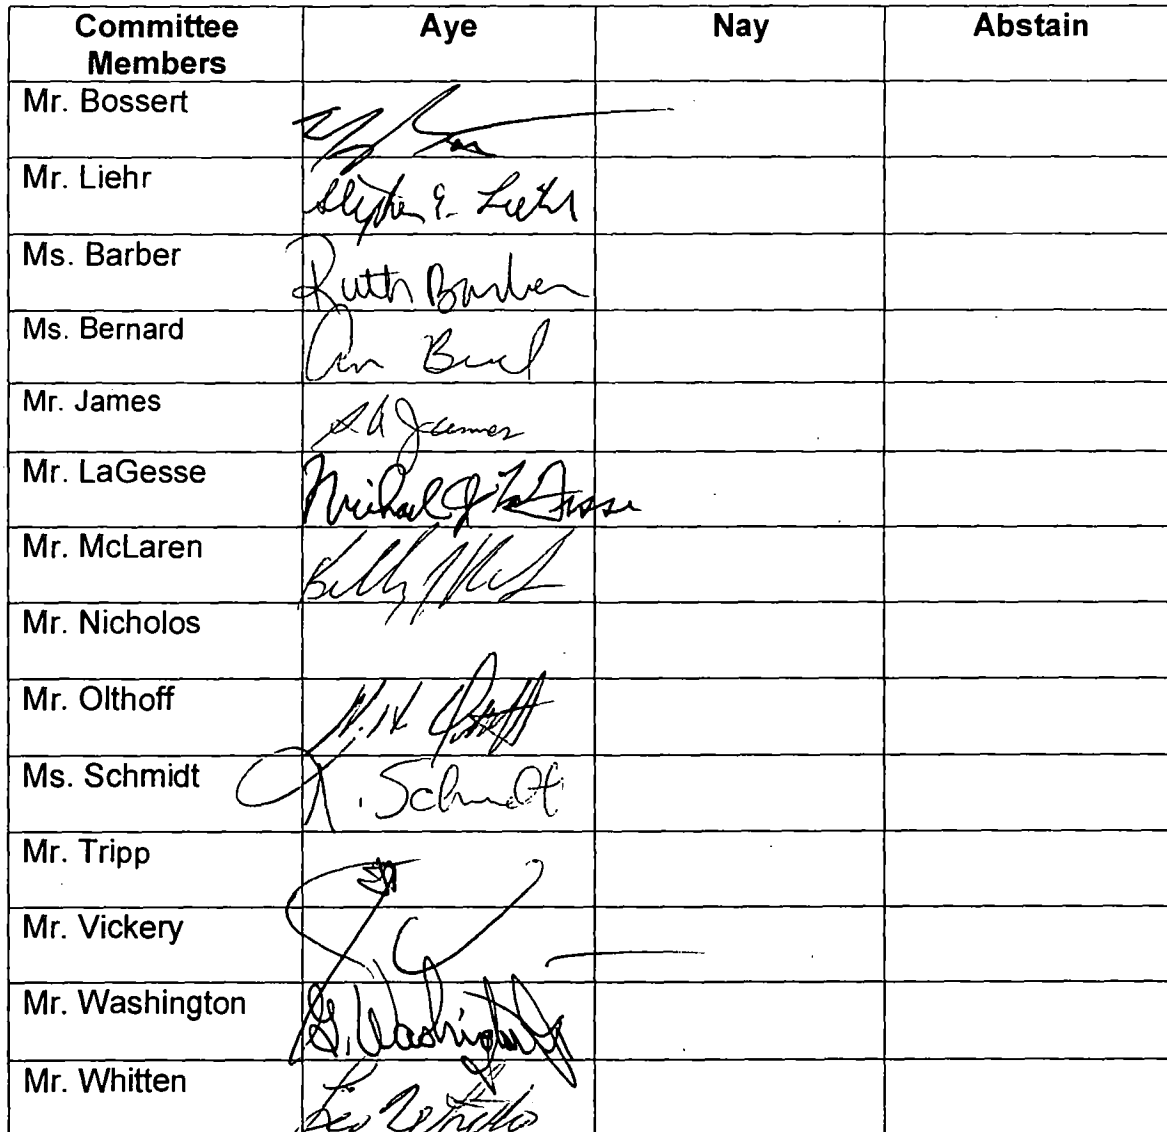 Committee Members Aye Nay Abstain
Mr. Bossert
Mr. Liehr Stephen E. Liehr
Ms. Barber Ruth Barber
Ms. Bernard Ann
Mr. James James
Mr. LaGesse Michael J LaGesse
Mr. McLaren Billy
Mr. Nicholos
Mr. Olthoff
Ms. Schmidt K. Schmidt
Mr. Tripp
Mr. Vickery
Mr. Washington G. Washington
Mr. Whitten Leo